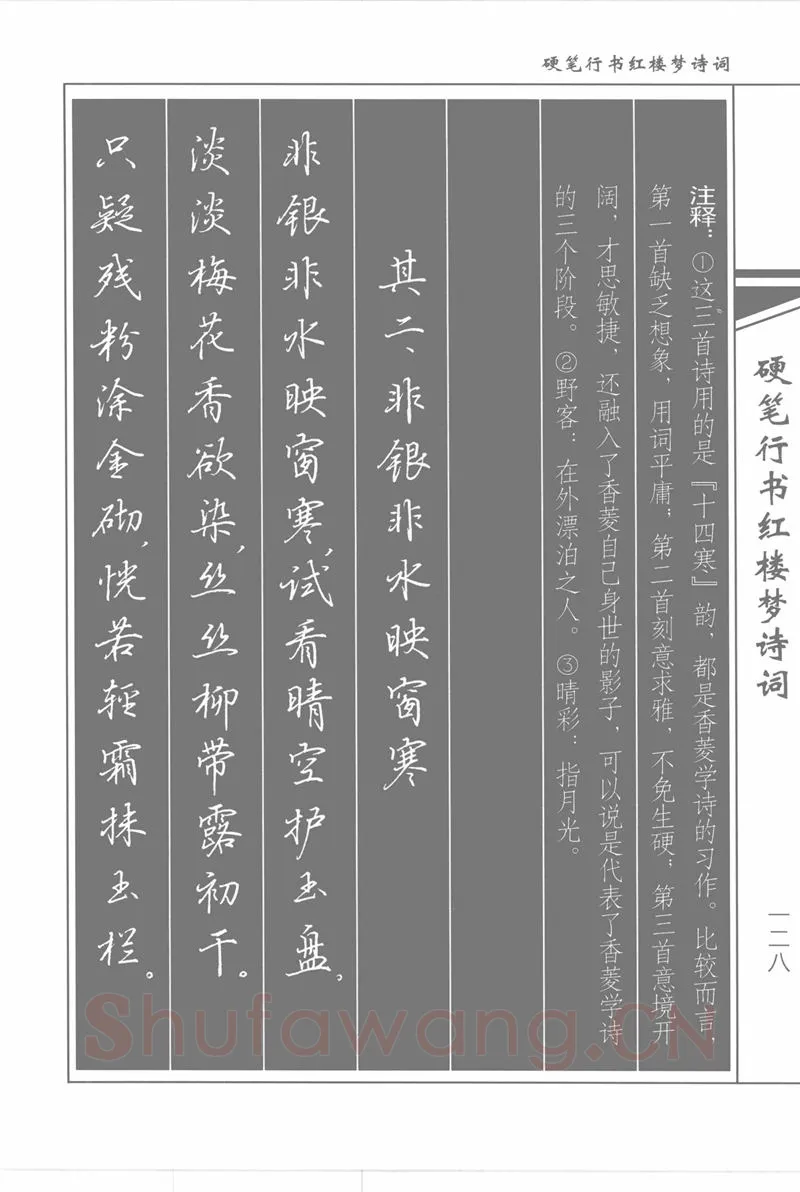 硬笔行书红楼梦诗词
注释：①这三首诗用的是『十四寒』韵，都是香菱学诗的习作。比较而言，
第一首缺乏想象，用词平庸；第二首刻意求雅，不免生硬；第三首意境开
阔，才思敏捷，还融入了香菱自己身世的影子，可以说是代表了香菱学诗
的三个阶段。②野客：在外漂泊之人。③晴彩：指月光。
其二、非银非水映窗寒
非银非水映窗寒，试看晴空护玉盘。
淡淡梅花香欲染，丝丝柳带露初干。
只疑残粉涂金砌，恍若轻霜抹玉栏。
硬笔行书红楼梦诗词
一二八
Shufawang.CN